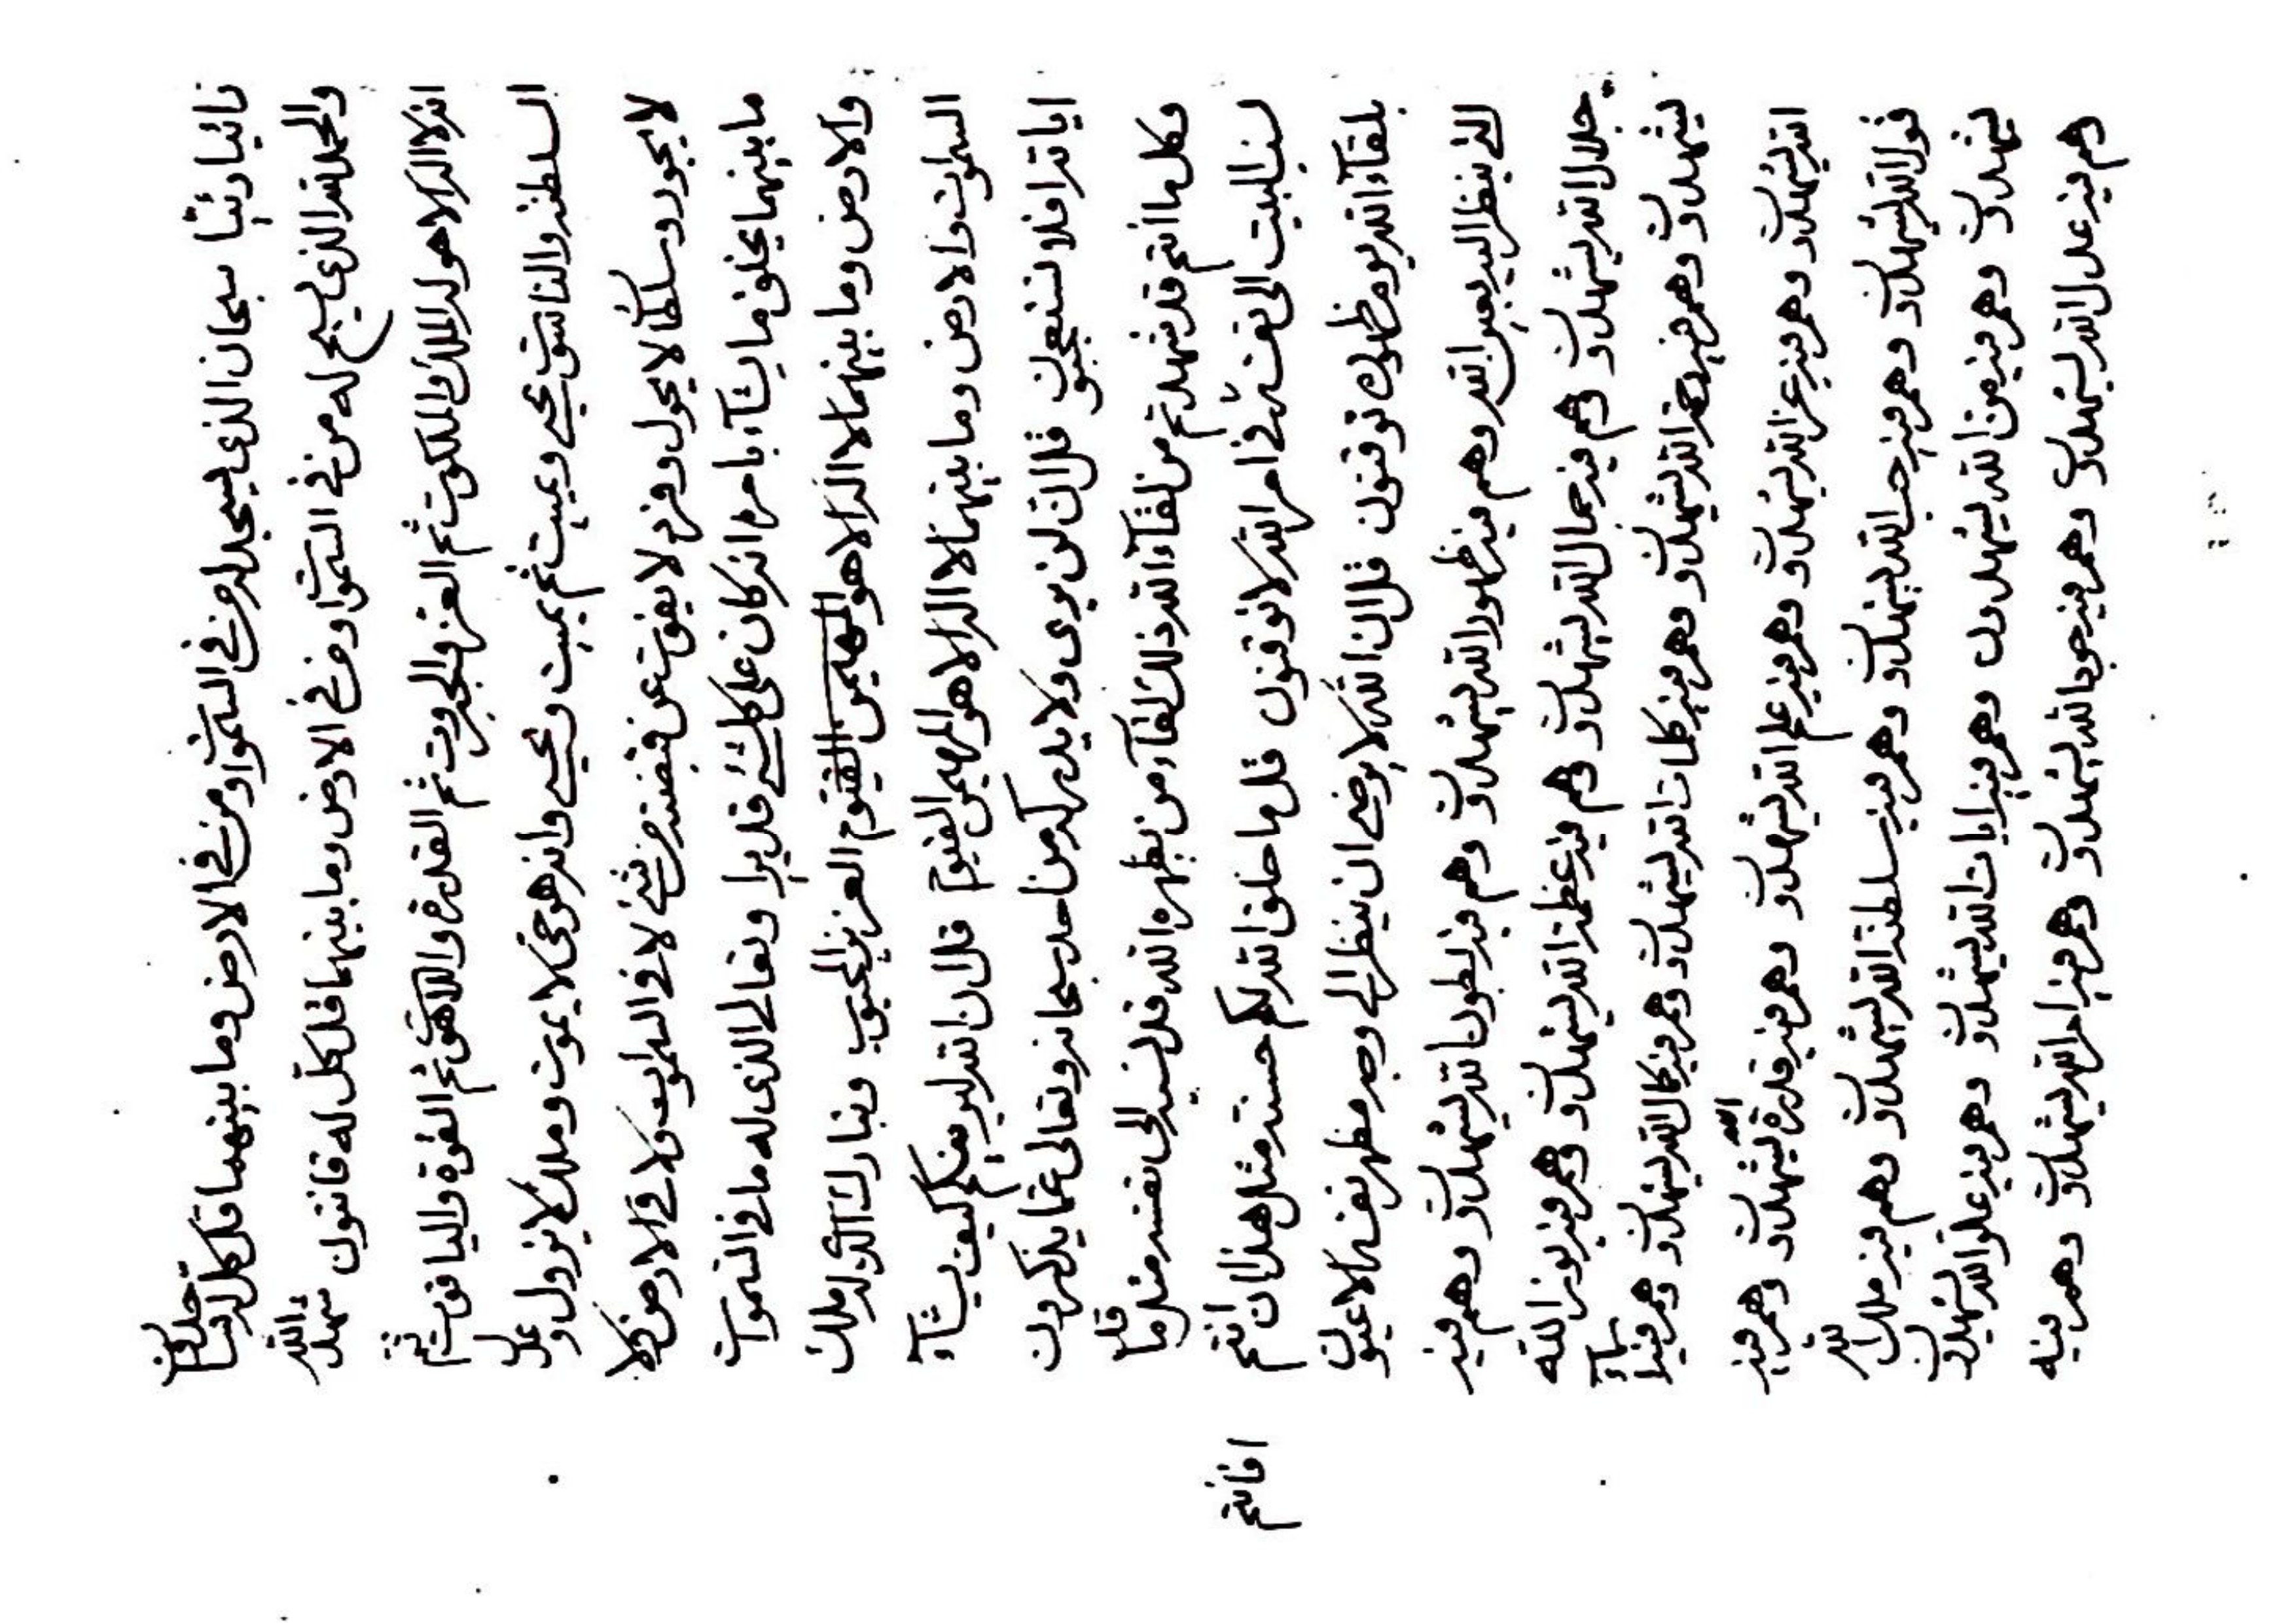 نائيا دئيا سبحان الذي يسجد له من في السموات ومن في الارض وما بينهما قل كل له ساجدون
والحمد لله الذي يسبح له من في السموات ومن في الارض وما بينهما قل كل له قانتون شهد الله
انه لا اله الا هو له الملك والملكوت ثم العز والجبروت ثم القدرة واللاهوت ثم القوة والياقوت ثم
السلطنة والناسوت يحيي ويميت ثم يميت ويحيي وانه هو حي لا يموت وملك لا يزول وعدل
لا يجور وسلطان لا يحول وفرد لا يفوت عن قبضته من شئ لا في السموات ولا في الارض ولا
ما بينهما يخلق ما يشآء بامره انه كان على كل شئ قديرا وتعالى الذي له ما في السموات
والارض وما بينهما لا اله الا هو المهيمن القيوم العزيز المحبوب وتبارك الذي له ملك
السموات والارض وما بينهما لا اله الا هو المهيمن القيوم قل ان الله ليريينكم كيف يشآء
اياته افلا تستعجبون قل ان الله لن يرى ولا يدركه من احد سبحانه وتعالى عما يذكرون
وكل ما انتم قد شهدتم من لقآء الله ذلك لقآء من يظهره الله قد نسبه الى نفسه مثل ما قد
نسب البيت الى نفسه في امر الله لا توقنون قل ما خلق الله لكم حسنة مثل هذا ان انتم
بلقآء الله يوم ظهوره توقنون قل ان الله لا يرضى ان ينظر الى وجه مظهر نفسه الا عيون
التي ينظر اليه بعين الله وهم فيه ظهور الله يشهدون وهم فيه بطون الله يشهدون وهم فيه
جلال الله يشهدون وهم فيه جمال الله يشهدون وهم فيه عظمة الله يشهدون وهم فيه نور الله
يشهدون وهم فيه رحمة الله يشهدون وهم فيه كلمات الله يشهدون وهم فيه كمال الله يشهدون وهم فيه اسمآء
الله يشهدون وهم فيه عز الله يشهدون وهم فيه علم الله يشهدون وهم فيه قدرة الله يشهدون وهم فيه
قول الله يشهدون وهم فيه حب الله يشهدون وهم فيه سلطنة الله يشهدون وهم فيه ملك الله
يشهدون وهم فيه من الله يشهدون وهم فيه ايات الله يشهدون وهم فيه علو الله يشهدون
وهم فيه عدل الله يشهدون وهم فيه الله يشهدون وهم فيه امر الله يشهدون وهم فيه
افانتم